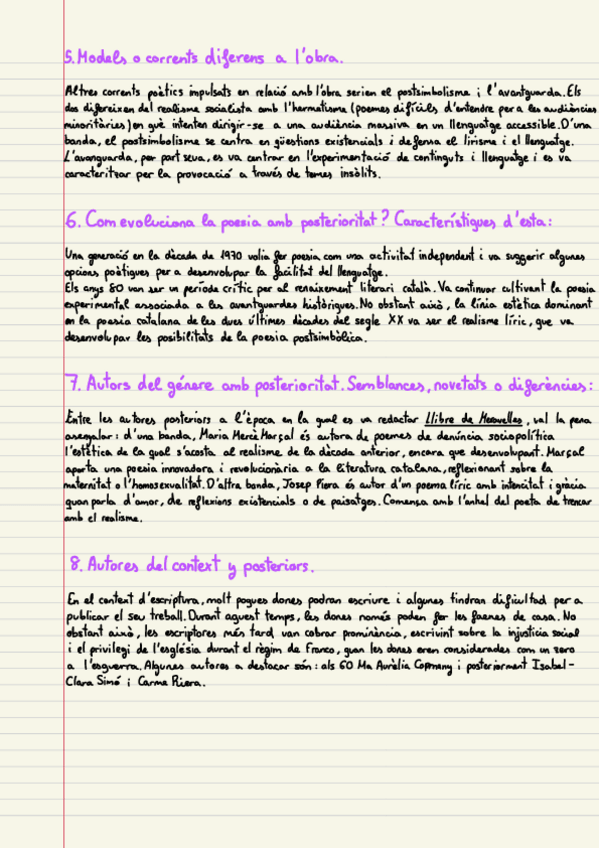 5. Models o corrents diferens a l'obra.
Altres corrents poètics impulsats en relació amb l'obra serien el postsimbolisme i l'avantguarda. Els
dos difereixen del realisme socialista amb l'hermetisme (poemes difícils d'entendre per a les audiències
minoritàries) en què intenten dirigir-se a una audiència massiva en un llenguatge accessible. D'una
banda, el postsimbolisme se centra en qüestions existencials i defensa el lirisme i el llenguatge.
L'avanguarda, per part seva, es va centrar en l'experimentació de continguts i llenguatge i es va
caracteritzar per la provocació a través de temes insòlits.
6. Com evoluciona la poesia amb posterioritat? Característigues d'esta:
Una generació en la dècada de 1970 volia fer poesia com una activitat independent i va suggerir algunes
opcions poètiques per a desenvolupar la facilitat del llenguatge.
Els anys 80 van ser un període crític per al renaixement literari català. Va continuar cultivant la poesia
experimental associada a les avantguardes històriques. No obstant això, la línia estètica dominant
en la poesia catalana de les dues últimes dècades del segle XX va ser el realisme líric, que va
desenvolupar les posibilitats de la poesia postsimbòlica.
7. Autors del género amb posterioritat. Semblances, novetats o diferències:
Entre les autores posteriors a l'època en la qual es va redactar Llibre de Meravelles, val la pena
assenyalar: d'una banda, Maria Mercè Marçal és autora de poemes de denúncia sociopolítica
l'estètica de la qual s'acosta al realisme de la dècada anterior, encara que desenvolupant. Marçal
aporta una poesia innovadora i revolucionària a la literatura catalana, reflexionant sobre la
maternitat o l'homosexualitat. D'altra banda, Josep Piera és autor d'un poema líric amb intencitat i gràcia
quan parla d'amor, de reflexions existencials o de paisatges. Comensa amb l'anhel del poeta de trencar
amb el realisme.
8. Autores del context y posteriors.
En el context d'escriptura, molt pogues dones podran escriure i algunes tindran dificultad per a
publicar el seu treball. Durant aquest temps, les dones només poden fer les faenes de casa. No
obstant això, les escriptores més tard van cobrar prominència, escrivint sobre la injustícia social
i el privilegi de l'església durant el règim de Franco, quan les dones eren considerades com un zero
a l'esquerra. Algunes autores a destacar són: als 60 Ma Aurèlia Capmany i posteriorment Isabel-
Clara Simó i Carme Riera.